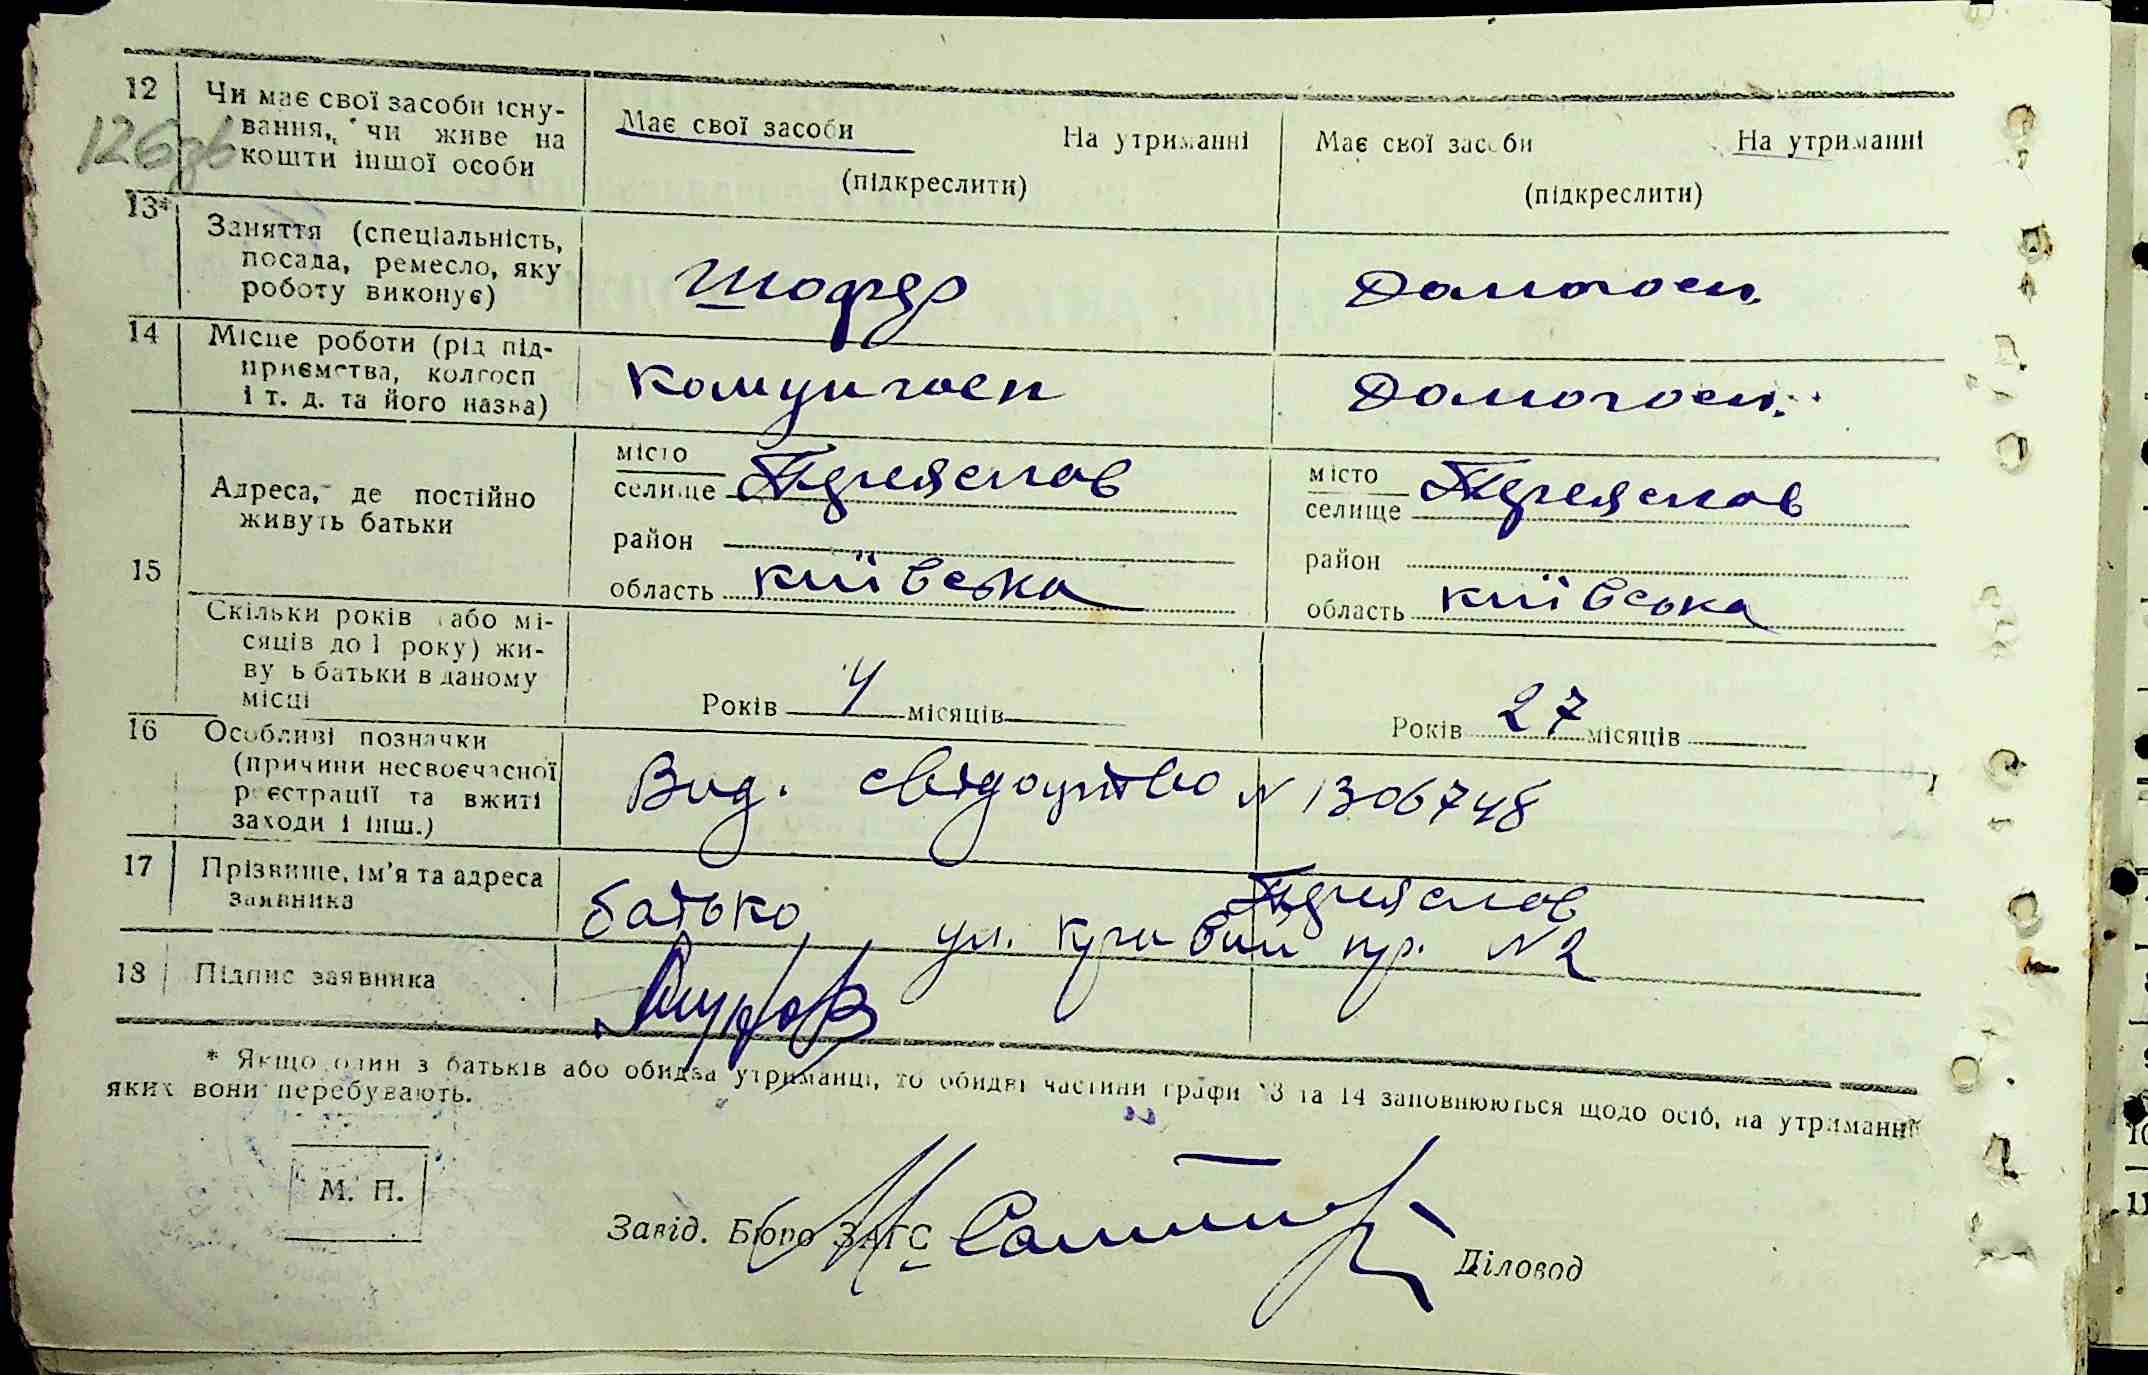 12 Чи має свої засоби існу-
вання, чи живе на
кошти іншої особи
Має свої засоби На утриманні
(підкреслити)
Має свої засоби На утриманні
(підкреслити)
126зв
13* Заняття (спеціальність,
посада, ремесло, яку
роботу виконує)
шофер
Домогосп.
14 Місце роботи (рід під-
приємства, колгосп
і т. д. та його назва)
Комунгосп
Домогосп.
15 Адреса, де постійно
живуть батьки
місто
селище Переяслов
район
область київська
місто
селище Переяслов
район
область київська
Скільки років або мі-
сяців до 1 року) жи-
ву ь батьки в даному
місці
Років 4 місяців
Років 27 місяців
16 Особливі позначки
(причини несвоєчасної
реєстрації та вжиті
заходи і інш.)
Вид. свідоцтво N 1306748
17 Прізвище, ім'я та адреса
заявника
Переяслов
батько, ул. кривий пр. N2
18 Підпис заявника
* Якщо один з батьків або обидва утриманці, то обидві частини графи 13 та 14 заповнюються щодо осіб, на утриманні
яких вони перебувають.
М. П.
Завід. Бюро ЗАГС
Діловод